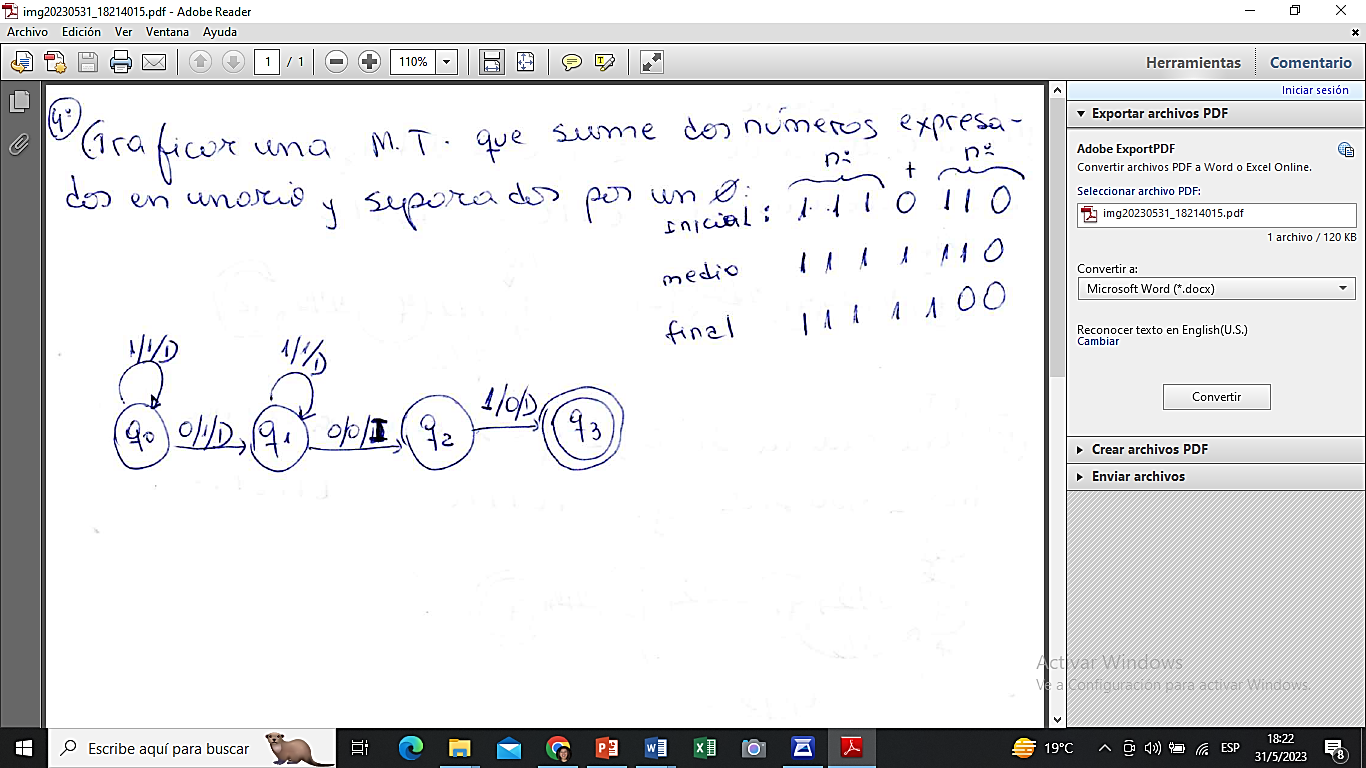 img20230531_18214015.pdf - Adobe Reader
Archivo Edición Ver Ventana Ayuda
1 / 1 110% Herramientas Comentario
Iniciar sesión
4º Graficar una M.T. que sume dos números expresa-
dos en unario y separados por un 0:
nº + nº
inicial: 1 1 1 0 1 1 0
medio 1 1 1 1 1 1 0
final 1 1 1 1 1 0 0
1/1/D 1/1/D
q0 0/1/D q1 0/0/I q2 1/0/D q3
Exportar archivos PDF
Adobe ExportPDF
Convertir archivos PDF a Word o Excel Online.
Seleccionar archivo PDF:
img20230531_18214015.pdf
1 archivo / 120 KB
Convertir a:
Microsoft Word (*.docx)
Reconocer texto en English(U.S.)
Cambiar
Convertir
Crear archivos PDF
Enviar archivos
Activar Windows
Ve a Configuración para activar Windows.
Escribe aquí para buscar
19°C ESP
18:22
31/5/2023
8